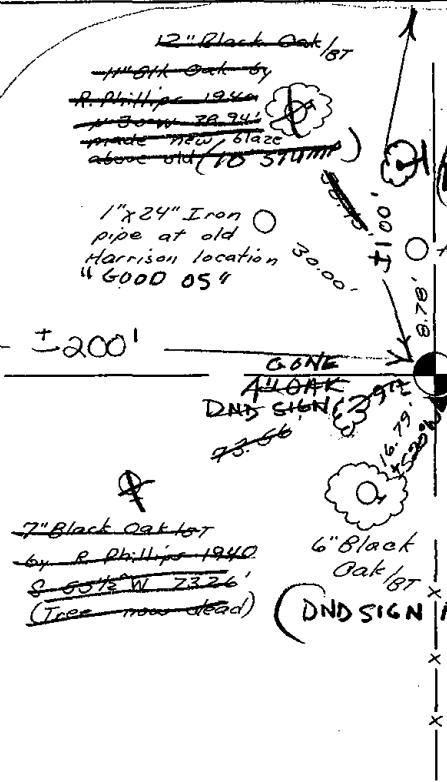 12" Black Oak/BT
11" Blk Oak by
R. Phillips 1940
made new blaze
above old (10" STUMP)
±100'
1"x24" Iron
pipe at old
Harrison location
"GOOD 05"
30.00'
8.78'
±200'
GONE
4" OAK
DND SIGN
73.66
16.79'
7" Black Oak/BT
by R Phillips 1940
S 55½°W 73.26'
(Tree now dead)
6" Black
Oak/BT
(DND SIGN